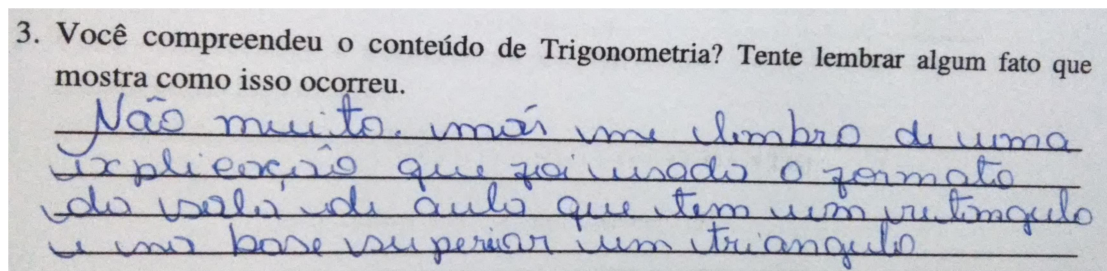 3. Você compreendeu o conteúdo de Trigonometria? Tente lembrar algum fato que
mostra como isso ocorreu.
Não muito. mais me lembro de uma
explicação que foi usado o formato
da sala de aula que tem um retângulo
e na base superior um triangulo